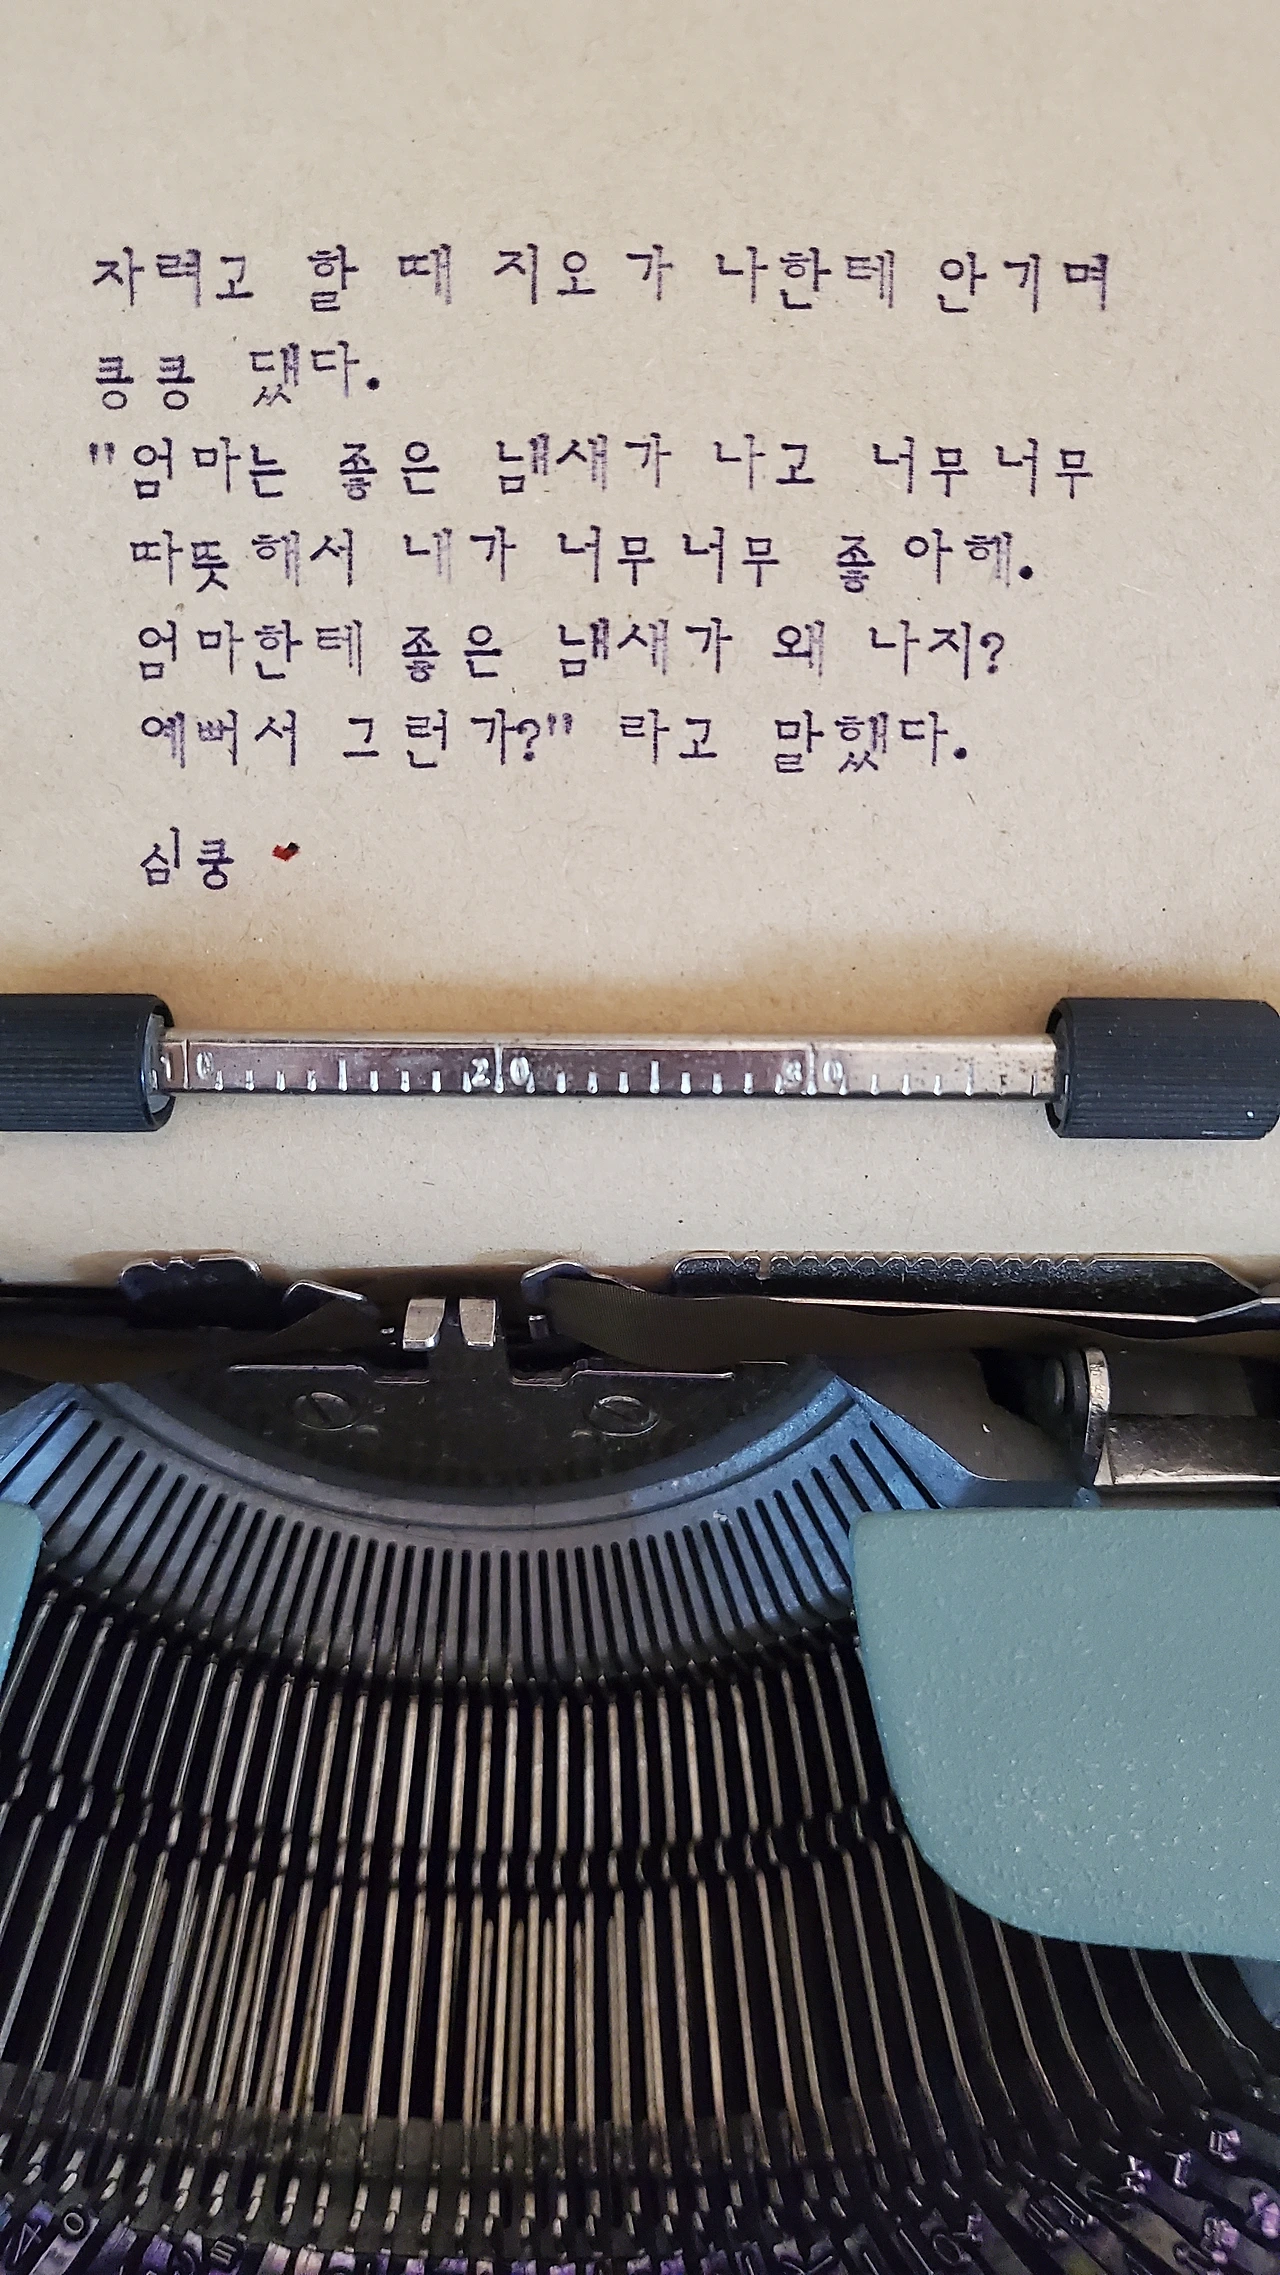 자려고 할 때 지오가 나한테 안기며
킁킁 댔다.
"엄마는 좋은 냄새가 나고 너무너무
따뜻해서 내가 너무너무 좋아해.
엄마한테 좋은 냄새가 왜 나지?
예뻐서 그런가?" 라고 말했다.
심쿵 ♥
10 20 30